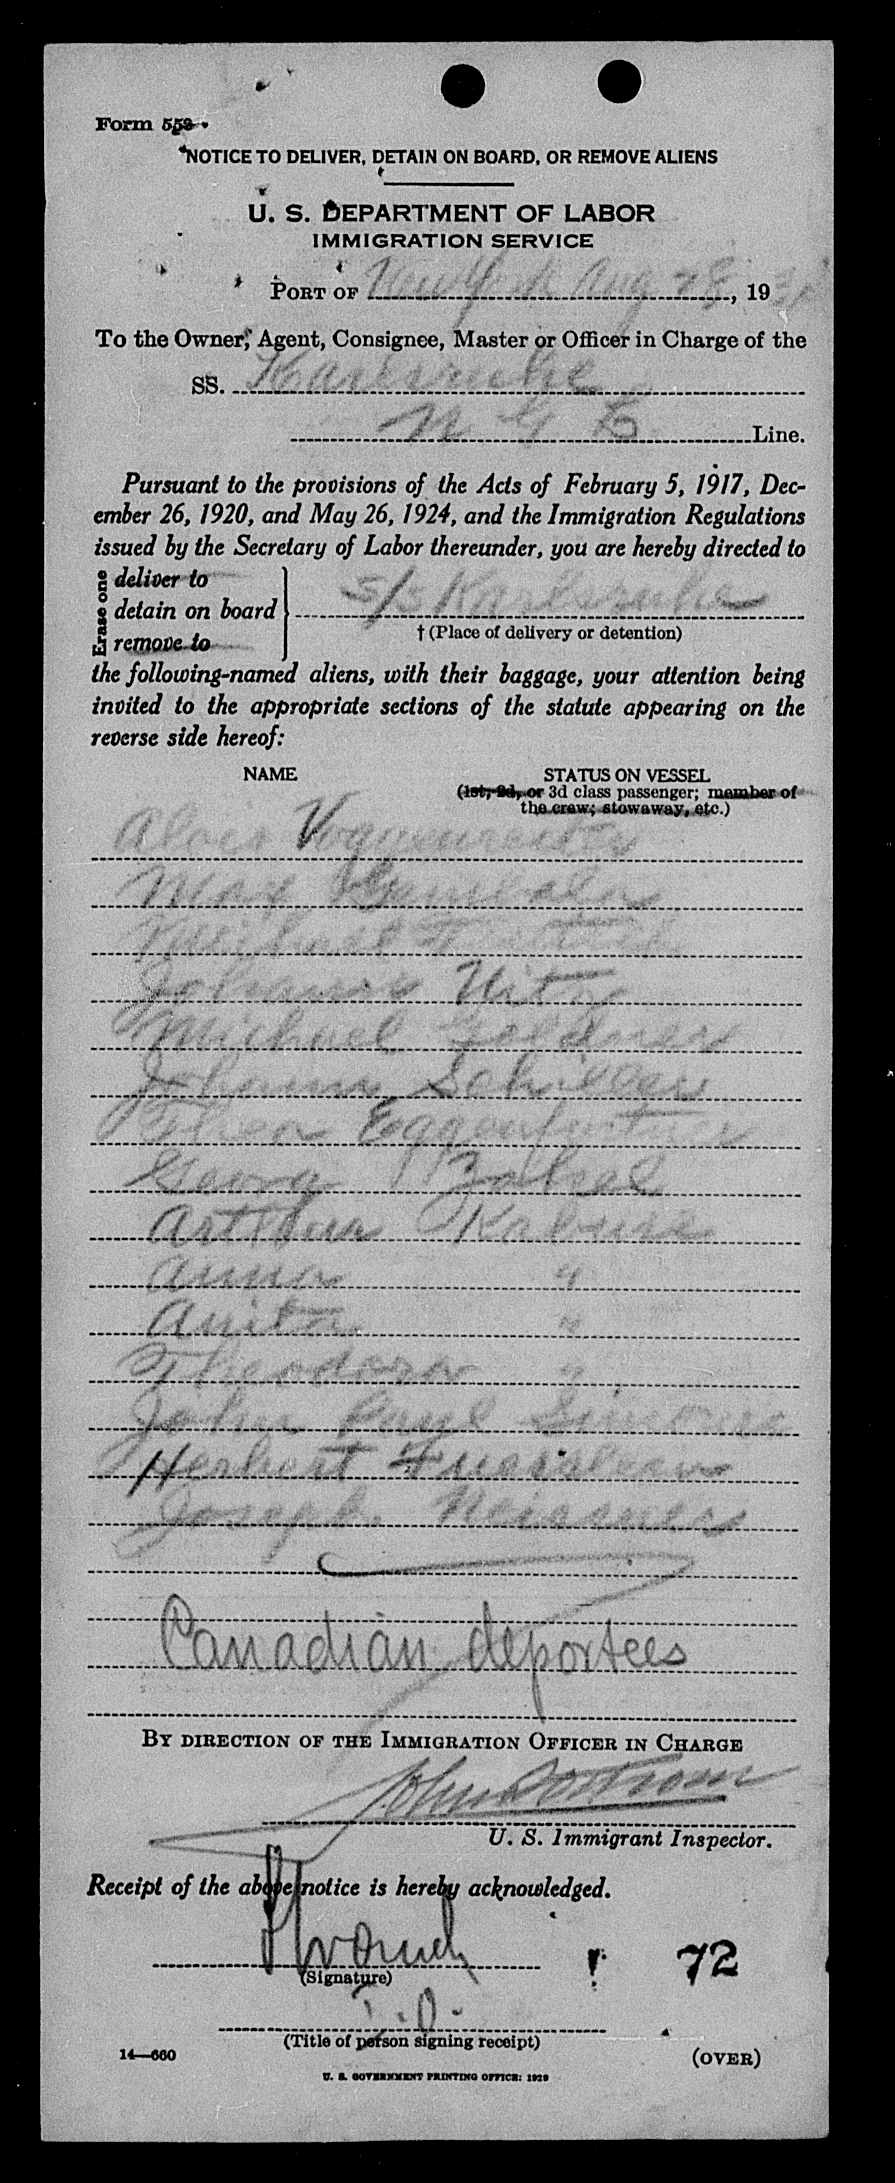 Form 553
NOTICE TO DELIVER, DETAIN ON BOARD, OR REMOVE ALIENS
U. S. DEPARTMENT OF LABOR
IMMIGRATION SERVICE
PORT OF New York Aug 28, 19
To the Owner, Agent, Consignee, Master or Officer in Charge of the
SS. Karlsruhe
N G L Line.
Pursuant to the provisions of the Acts of February 5, 1917, Dec-
ember 26, 1920, and May 26, 1924, and the Immigration Regulations
issued by the Secretary of Labor thereunder, you are hereby directed to
Erase one
deliver to
detain on board s/s Karlsruhe
remove to
† (Place of delivery or detention)
the following-named aliens, with their baggage, your attention being
invited to the appropriate sections of the statute appearing on the
reverse side hereof:
NAME STATUS ON VESSEL
(1st, 2d, or 3d class passenger; member of
the crew; stowaway, etc.)
Alois
Max
Michael
Johann
Michael Goldner
Johann Schiller
Georg
Arthur
Anna "
Anita "
Theodora "
John
Herbert
Joseph Meissner
Canadian deportees
BY DIRECTION OF THE IMMIGRATION OFFICER IN CHARGE
John
U. S. Immigrant Inspector.
Receipt of the above notice is hereby acknowledged.
(Signature)
72
(Title of person signing receipt)
14—660
(OVER)
U. S. GOVERNMENT PRINTING OFFICE: 1929